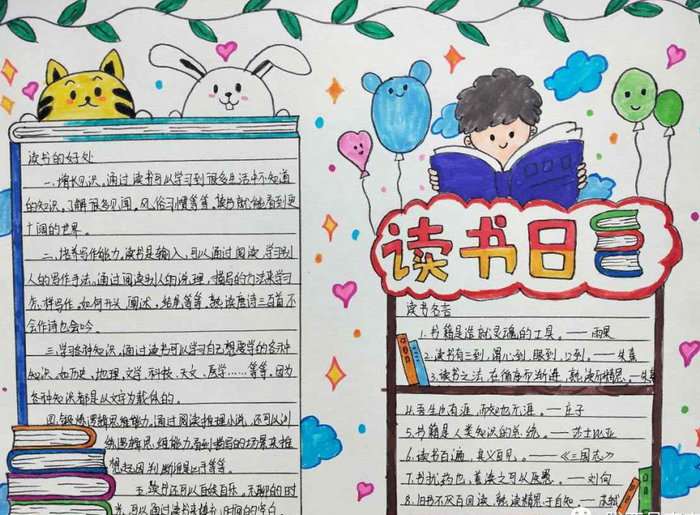 读书的好处
一、增长见识，通过读书可以学习到很多生活中不知道
的知识，了解很多见闻。风俗习惯等等。读书就能看到更
广阔的世界。
二、培养写作能力，读书是输入，可以通过阅读学习别
人的写作手法。通过阅读别人的说理，描写的方法来学习
怎样写作，如何开头，阐述，结尾等等，熟读唐诗三百首不
会作诗也会吟。
三、学习各种知识，通过读书可以学习自己想要学的各种
知识，如历史、地理、文学、科技、天文、医学……等等，因为
各种知识都是以文字为载体的。
四、锻炼逻辑思维能力，通过阅读推理小说，还可以训
练逻辑思维能力
想起因判断
五、读书还可以自娱自乐。无聊的时
光，可以通过读书来填补时间的空白
读书日
读书名言
1.书籍是造就灵魂的工具。——雨果
2.读书有三到，谓心到，眼到，口到。——朱熹
3.读书之法，在循序而渐进，熟读而精思。——朱熹
4.吾生也有涯，而知也无涯。——庄子
5.书籍是人类知识的总统。——莎士比亚
6.读书百遍，其义自见。——《三国志》
7.书犹药也，善读之可以医愚。——刘向
8.旧书不厌百回读，熟读精思子自知。——苏轼